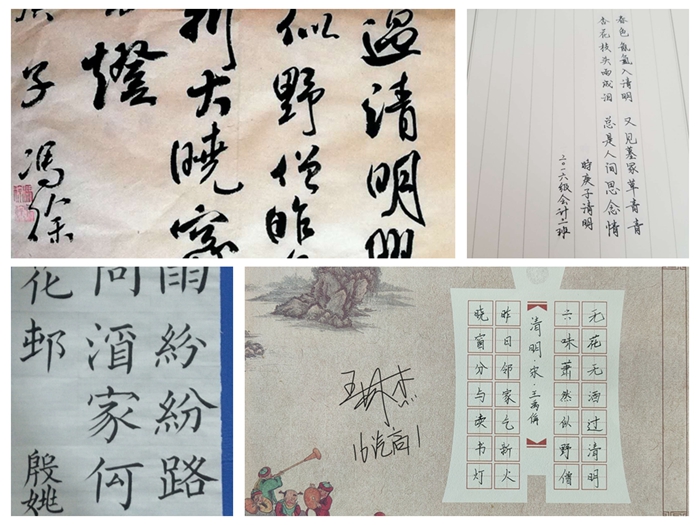 過清明
似野僧昨
新火曉窗
燈
庚子 馮徐
春色龍氣入清明 又见墓冢草青青
杏花枝头雨成泪 总是人间思念情
時庚子清明
二〇一六级会计二班
雨紛紛路
问酒家何
花邨 殷姚
无花无酒过清明
六味萧然似野僧
清明·宋·王禹偁
昨日邻家乞新火
晓窗分与读书灯